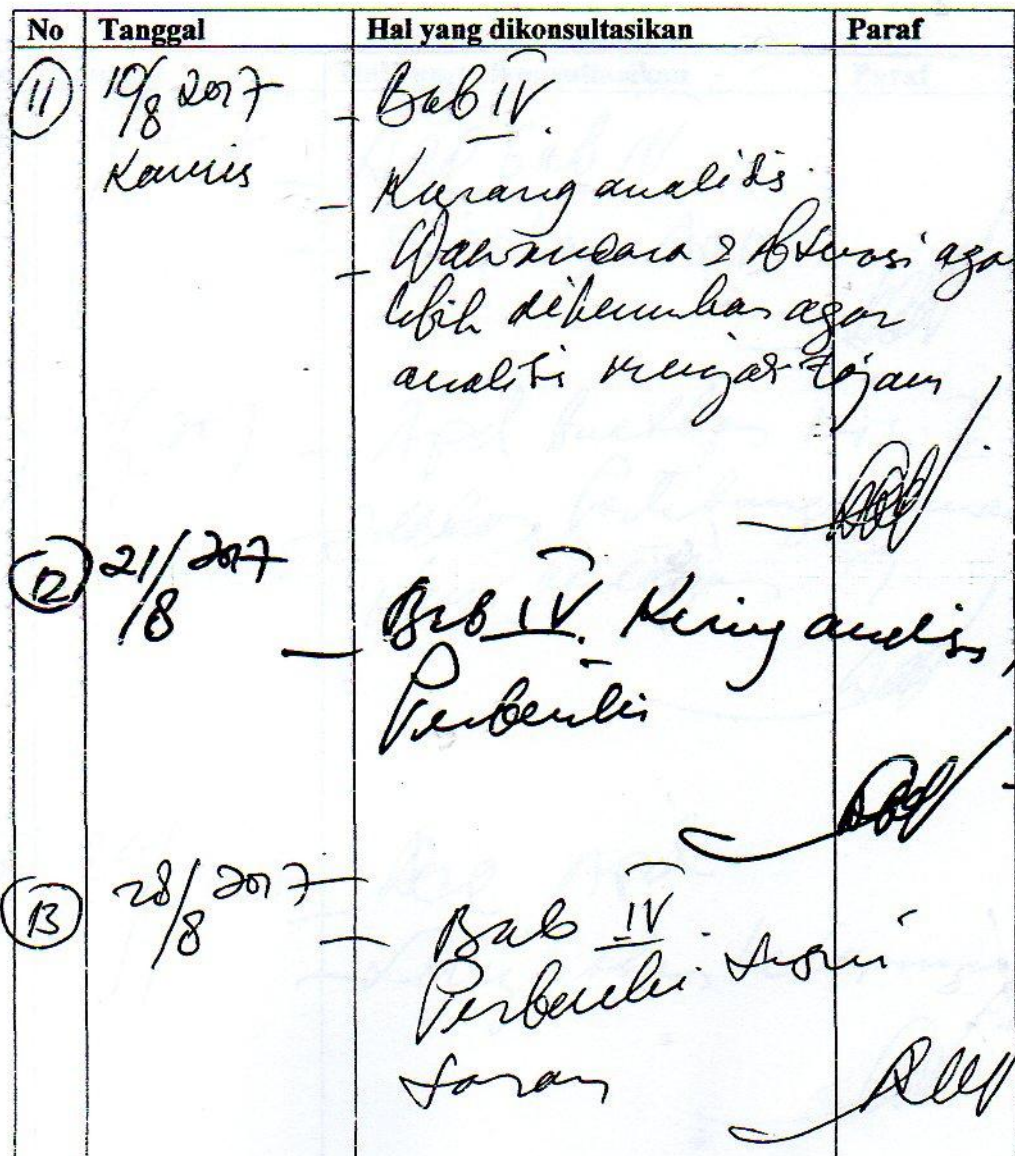 No Tanggal Hal yang dikonsultasikan Paraf
11 10/8 2017 - Bab IV.
Kamis - Kurang analisis.
- Wawancara & Observasi agar
lebih dikemukan agar
analisis menjadi tajam
12 21/8 2017 - Bab IV. Kurang analisis,
Perbaiki
13 28/8 2017 - Bab IV.
Perbaiki sesuai
saran